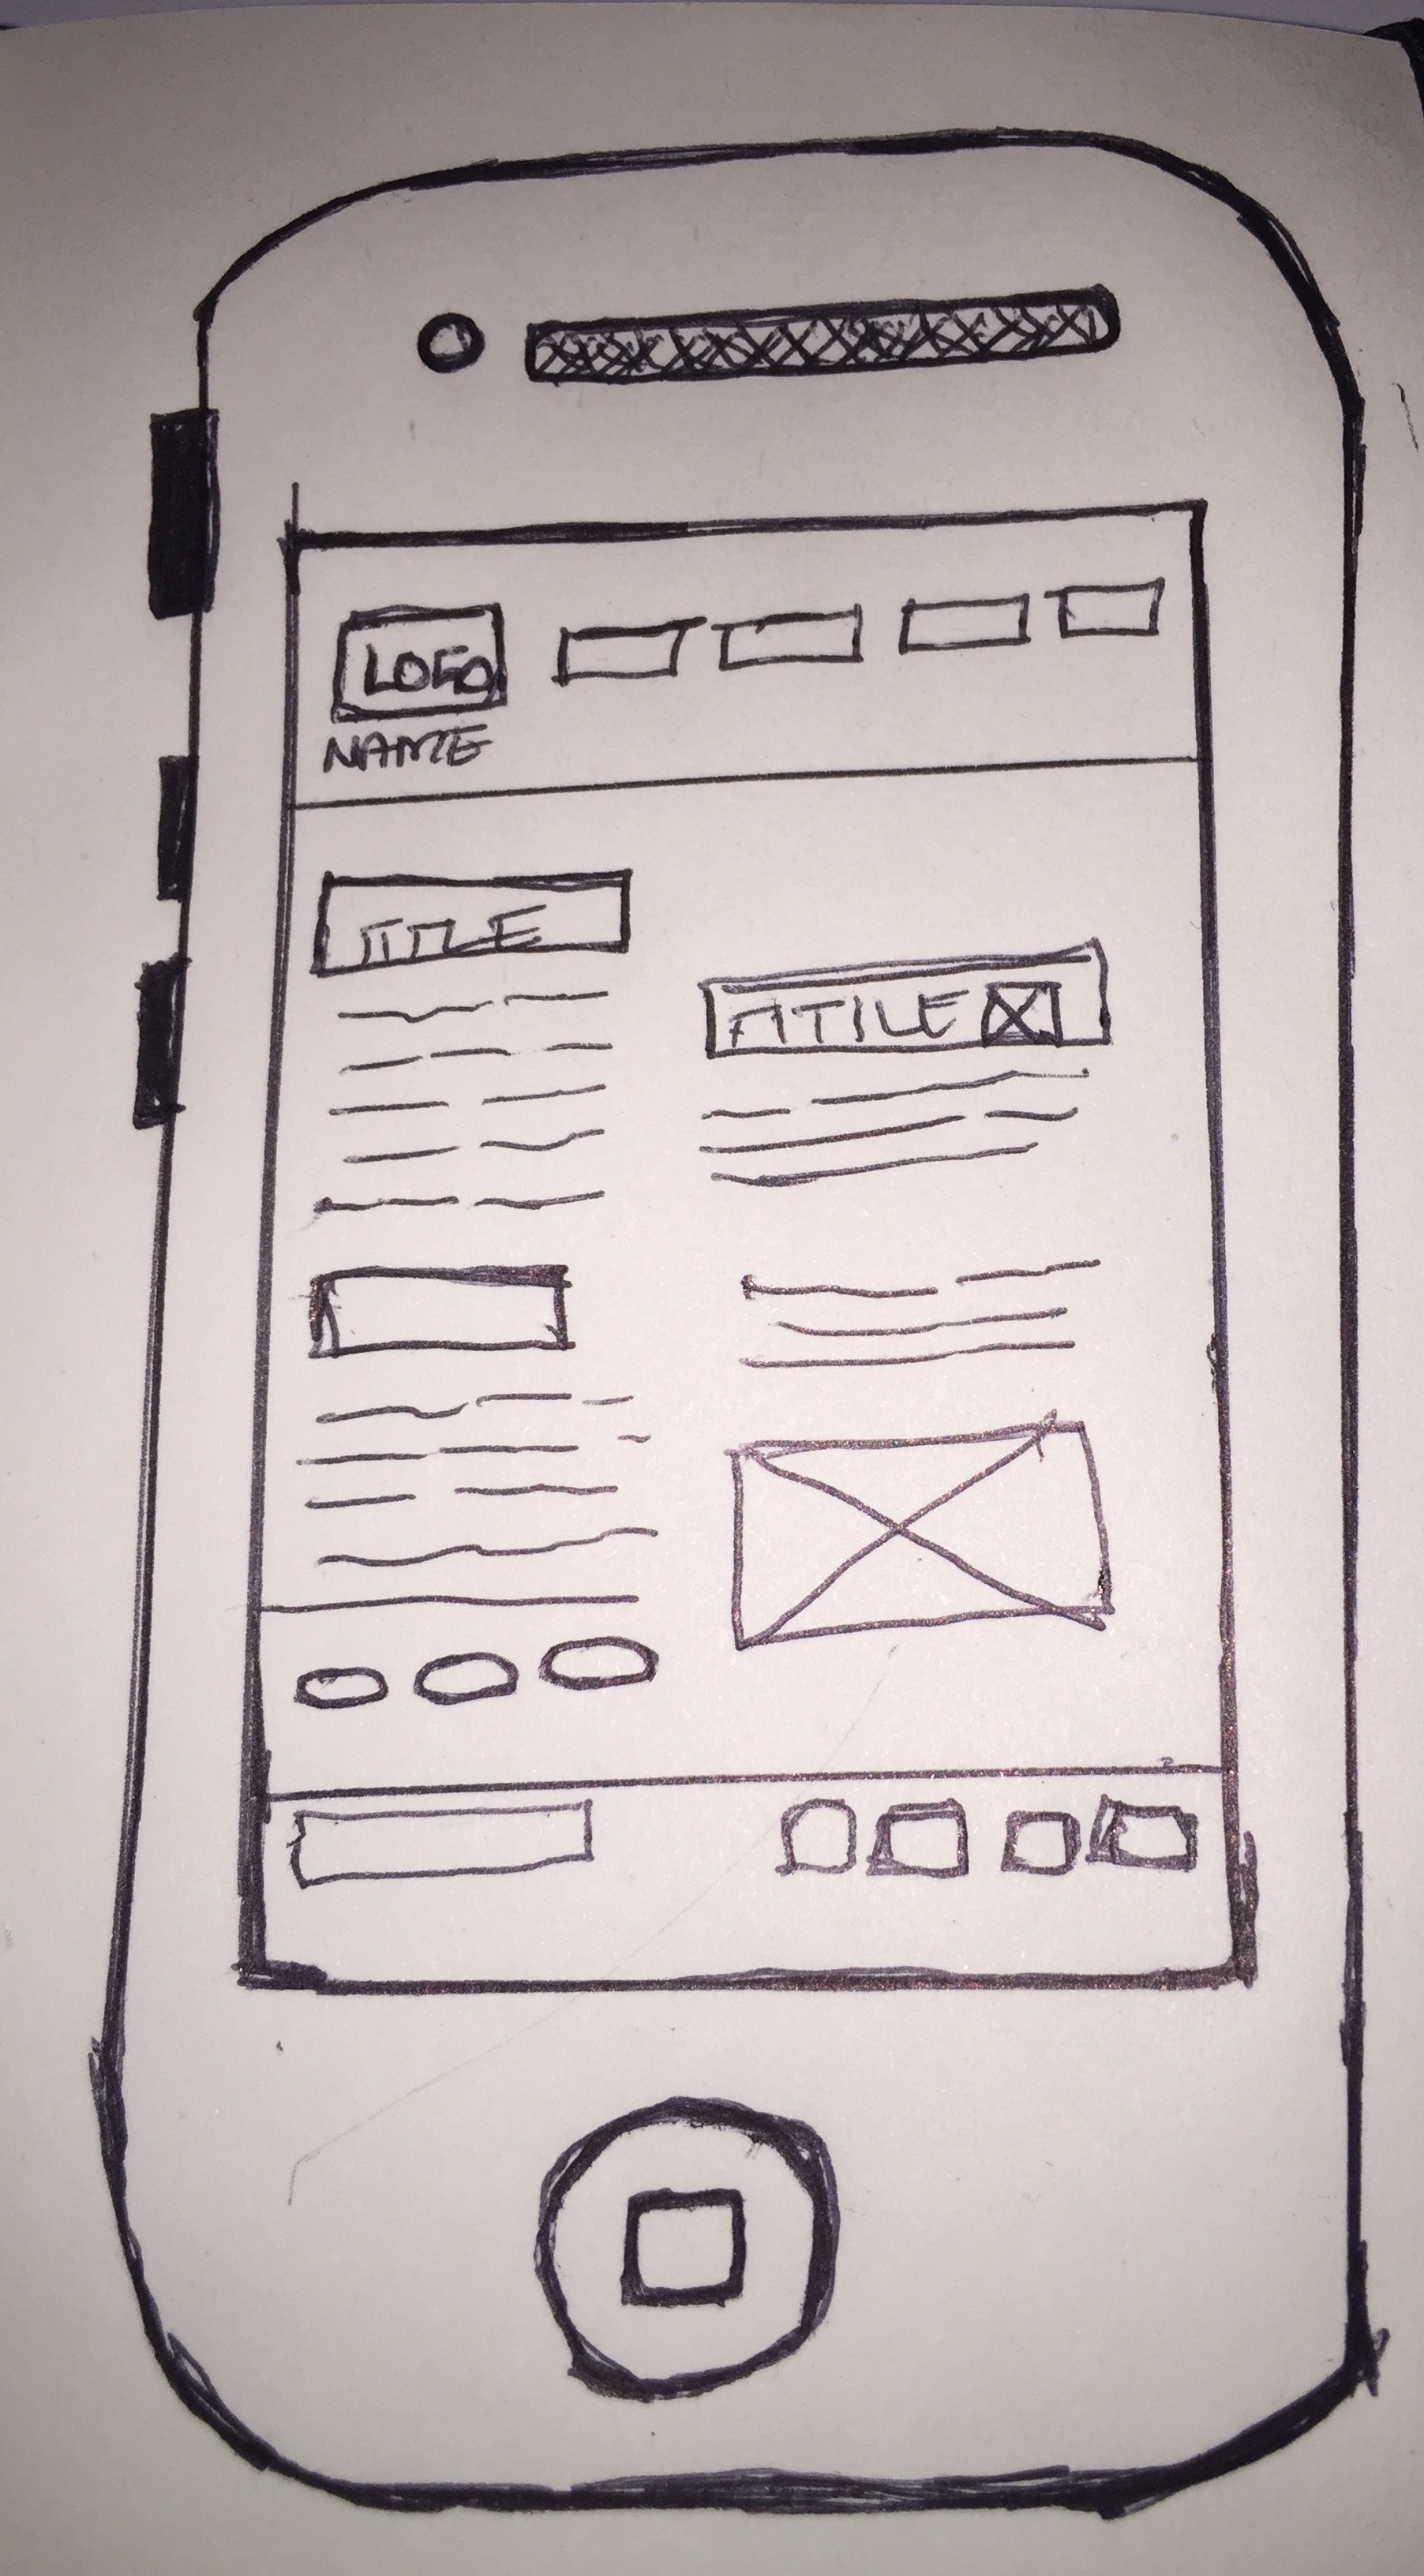 LOGO
NAME
TITLE
ATTILE